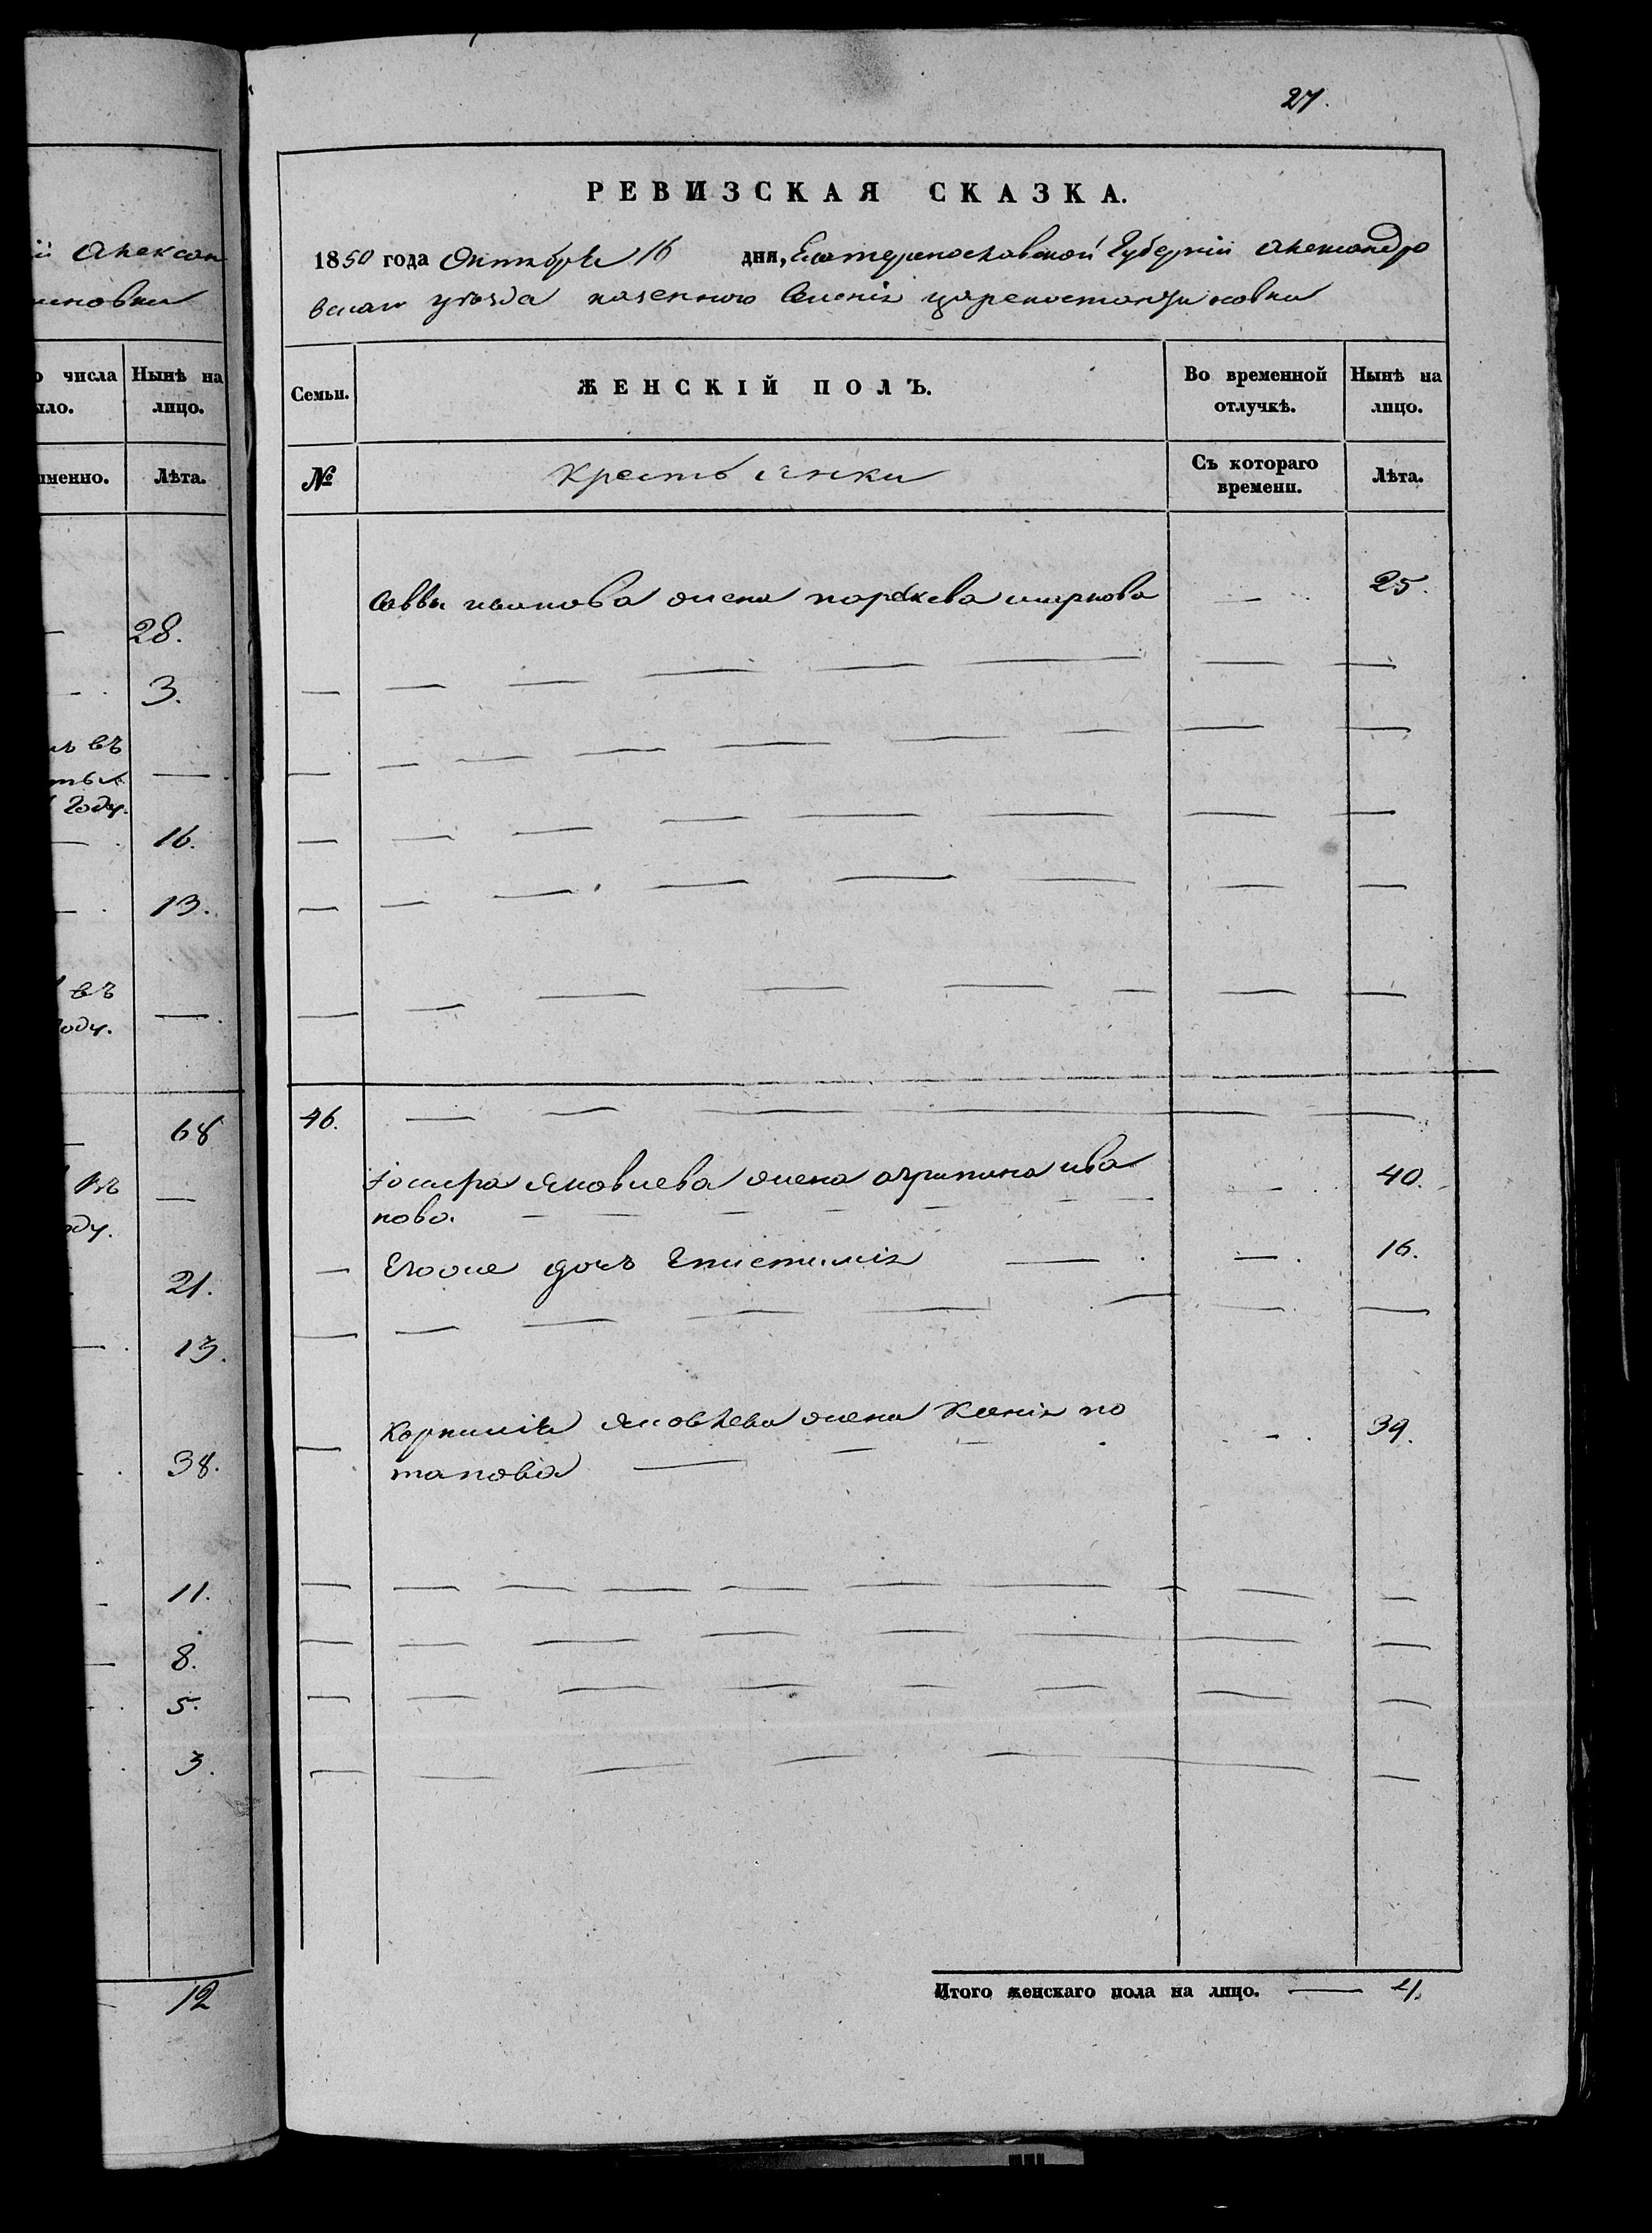 27.
РЕВИЗСКАЯ СКАЗКА.
1850 года Октября 16 дня, Екатеринославской Губернии Александро
вскаго уѣзда казенного Селенія цареконстантиновки
Семьи.
ЖЕНСКІЙ ПОЛЪ.
Во временной
отлучкѣ.
Нынѣ на
лицо.
№
Крестьянки
Съ котораго
времени.
Лѣта.
Саввы иванова жена парасковья 25.
46.
Яковлева жена агрипина ива 40.
нова.
Егоже дочь Епистимія 16.
Корнилія Яковлева жена Ксенія по 39.
тапова
Итого женскаго пола на лицо. 4.
Алексан
иновки
числа
Нынѣ на
лицо.
Лѣта.
28.
3.
въ
Году.
16.
13.
въ
68
21.
13.
38.
11.
8.
5.
3.
12